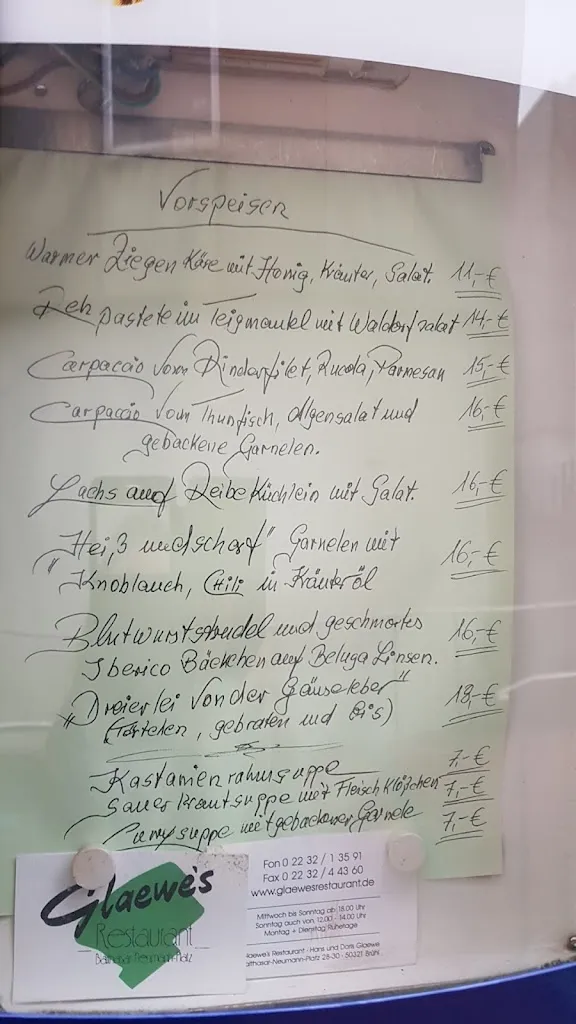 Vorspeisen
Warmer Ziegen Käse mit Honig, Kräuter, Salat. 11,-€
Reh pastete im Teigmantel mit Waldorfsalat 14,-€
Carpaccio vom Rinderfilet, Rucola, Parmesan 15,-€
Carpaccio vom Thunfisch, Algensalat und 16,-€
gebackene Garnelen.
Lachs auf Reibe Küchlein mit Salat. 16,-€
"Heiß und scharf" Garnelen mit
Knoblauch, Chili in Kräuteröl 16,-€
Blutwurststrudel und geschmortes 16,-€
Iberico Bäckchen auf Beluga Linsen.
"Dreierlei von der Gänseleber" 18,-€
(Törtchen, gebraten und Eis)
Kastanienrahmsuppe 7,-€
Sauerkrautsuppe mit Fleisch Klößchen 7,-€
Currysuppe mit gebackener Garnele 7,-€
Glaewe's
Restaurant
Balthasar-Neumann-Platz
Fon 0 22 32 / 1 35 91
Fax 0 22 32 / 4 43 60
www.glaewesrestaurant.de
Mittwoch bis Sonntag ab 18.00 Uhr
Sonntag auch von 12.00 - 14.00 Uhr
Montag + Dienstag Ruhetage
Glaewe's Restaurant · Hans und Doris Glaewe
Balthasar-Neumann-Platz 28-30 · 50321 Brühl